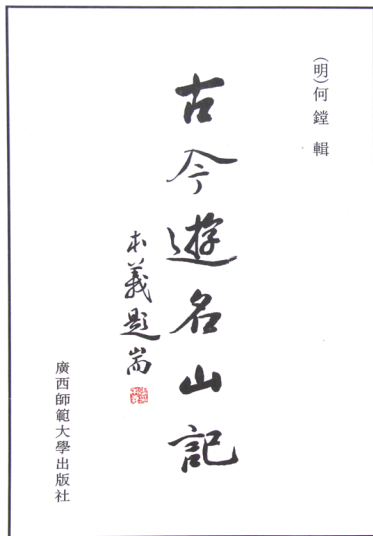 （明）何鏜　輯
古今遊名山記
本義題耑
廣西師範大學出版社